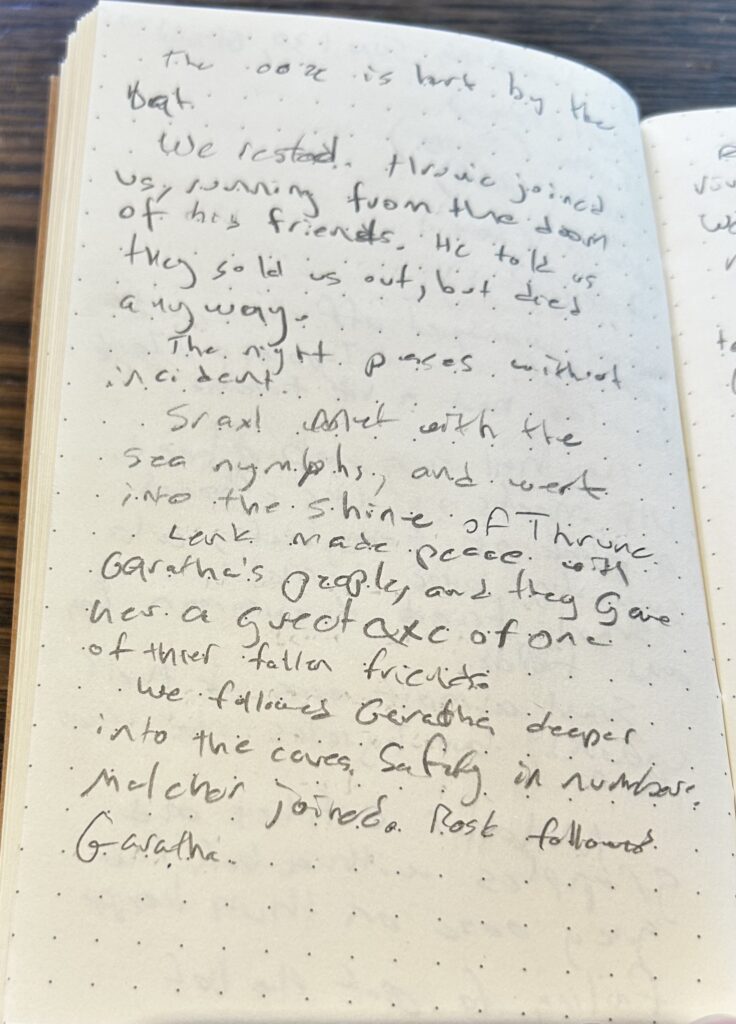 The ooze is hurt by the
Boat.
We rested. Thrunc joined
us, running from the doom
of his friends. He told us
they sold us out, but died
anyway.
The night passes without
incident.
Sraxl met with the
sea nymphs, and went
into the shine of Thrunc.
Lenk made peace with
Garatha's people, and they gave
her a great axe of one
of thier fallen friends.
We followed Garatha deeper
into the caves. Safety in numbers.
Melchor joined. Rosk followed
Garatha.